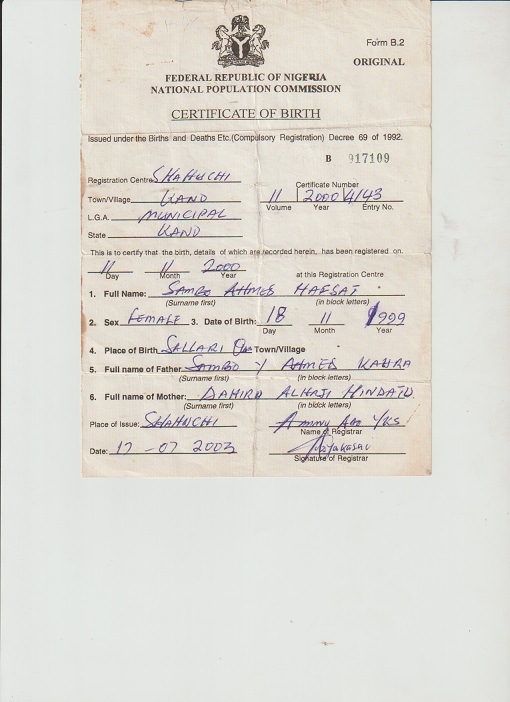 Form B.2
ORIGINAL
FEDERAL REPUBLIC OF NIGERIA
NATIONAL POPULATION COMMISSION
CERTIFICATE OF BIRTH
Issued under the Births and Deaths Etc.(Compulsory Registration) Decree 69 of 1992.
B 917109
Registration Centre SHAHUCHI
Certificate Number
Town/Village KANO
11 2000 4143
Volume Year Entry No.
L.G.A. MUNICIPAL
State KANO
This is to certify that the birth, details of which are recorded herein, has been registered on.
11 11 2000
Day Month Year at this Registration Centre
1. Full Name: SAMBO AHMED HAFSAT
(Surname first) (in block letters)
2. Sex FEMALE 3. Date of Birth: 18 11 1999
Day Month Year
4. Place of Birth SALLARI Town/Village
5. Full name of Father SAMBO Y AHMED KAURA
(Surname first) (in block letters)
6. Full name of Mother: DAHIRU ALHAJI HINDATU
(Surname first) (in block letters)
Place of Issue: SHAHUCHI
Name of Registrar
Date: 17-07 2003
Signature of Registrar